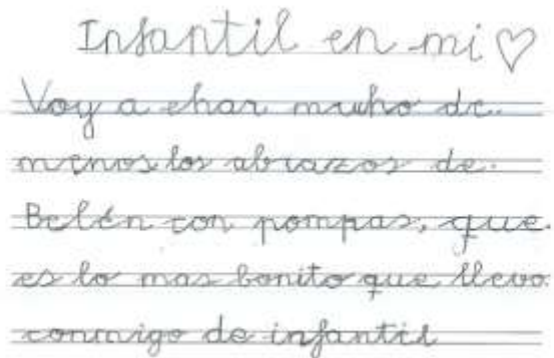 Infantil en mi ♡
Voy a ehar muho de.
menos los abrazos de.
Belén con pompas, que.
es lo mas bonito que llevo.
conmigo de infantil